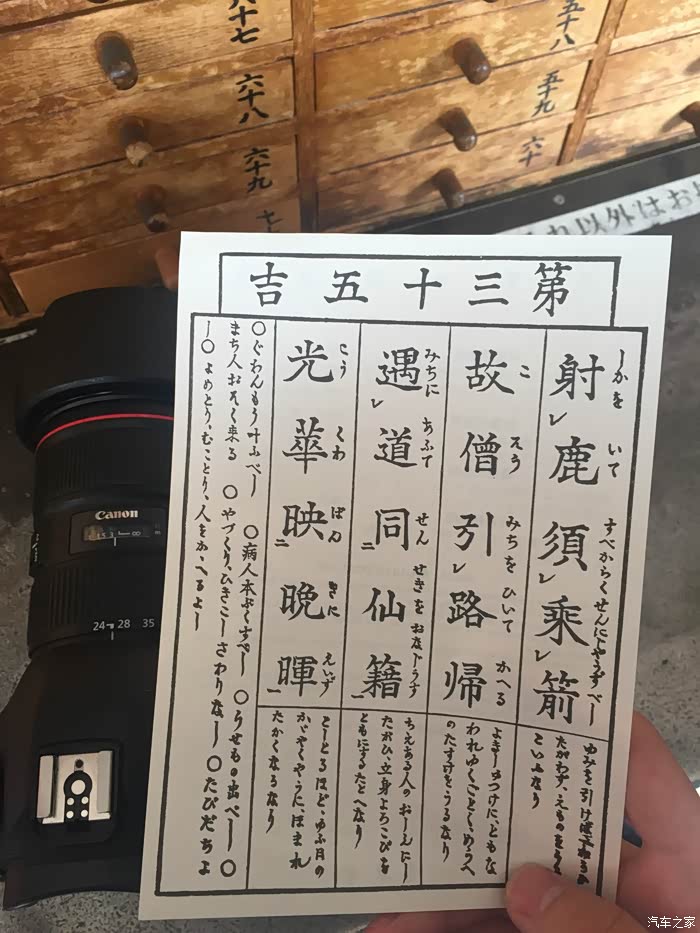 十七
六十八
六十九
五十八
五十九
六十
れ以外はお
第三十五吉
射鹿須乗箭
しかを いて すべからくせんにじやうずべし
故僧引路帰
こ そう みちを ひいて かへる
遇道同仙籍
みちに あふて せん せきを おなじうす
光華映晩暉
こう くわ ばん きに えいず
ゆみを引けば
たがわず、えものをう
といふなり
よきしゆつけに、ともな
われゆくごとく、めうへ
のたすけをうるなり
ちえある人のおしえにし
たがひ、立身よろこびを
ともにするたとへなり
としとるほど、ゆふ日の
かゞやくやうに、ほまれ
たかくなるなり
○ぐわんもう叶ふべし ○病人本ぷくすべし ○うせもの出べし ○
まち人おそく来る ○やづくり、ひきこしさわりなし ○たびだちよ
し ○よめとり、むことり、人をかゝへるよし
Canon
24 28 35
汽车之家